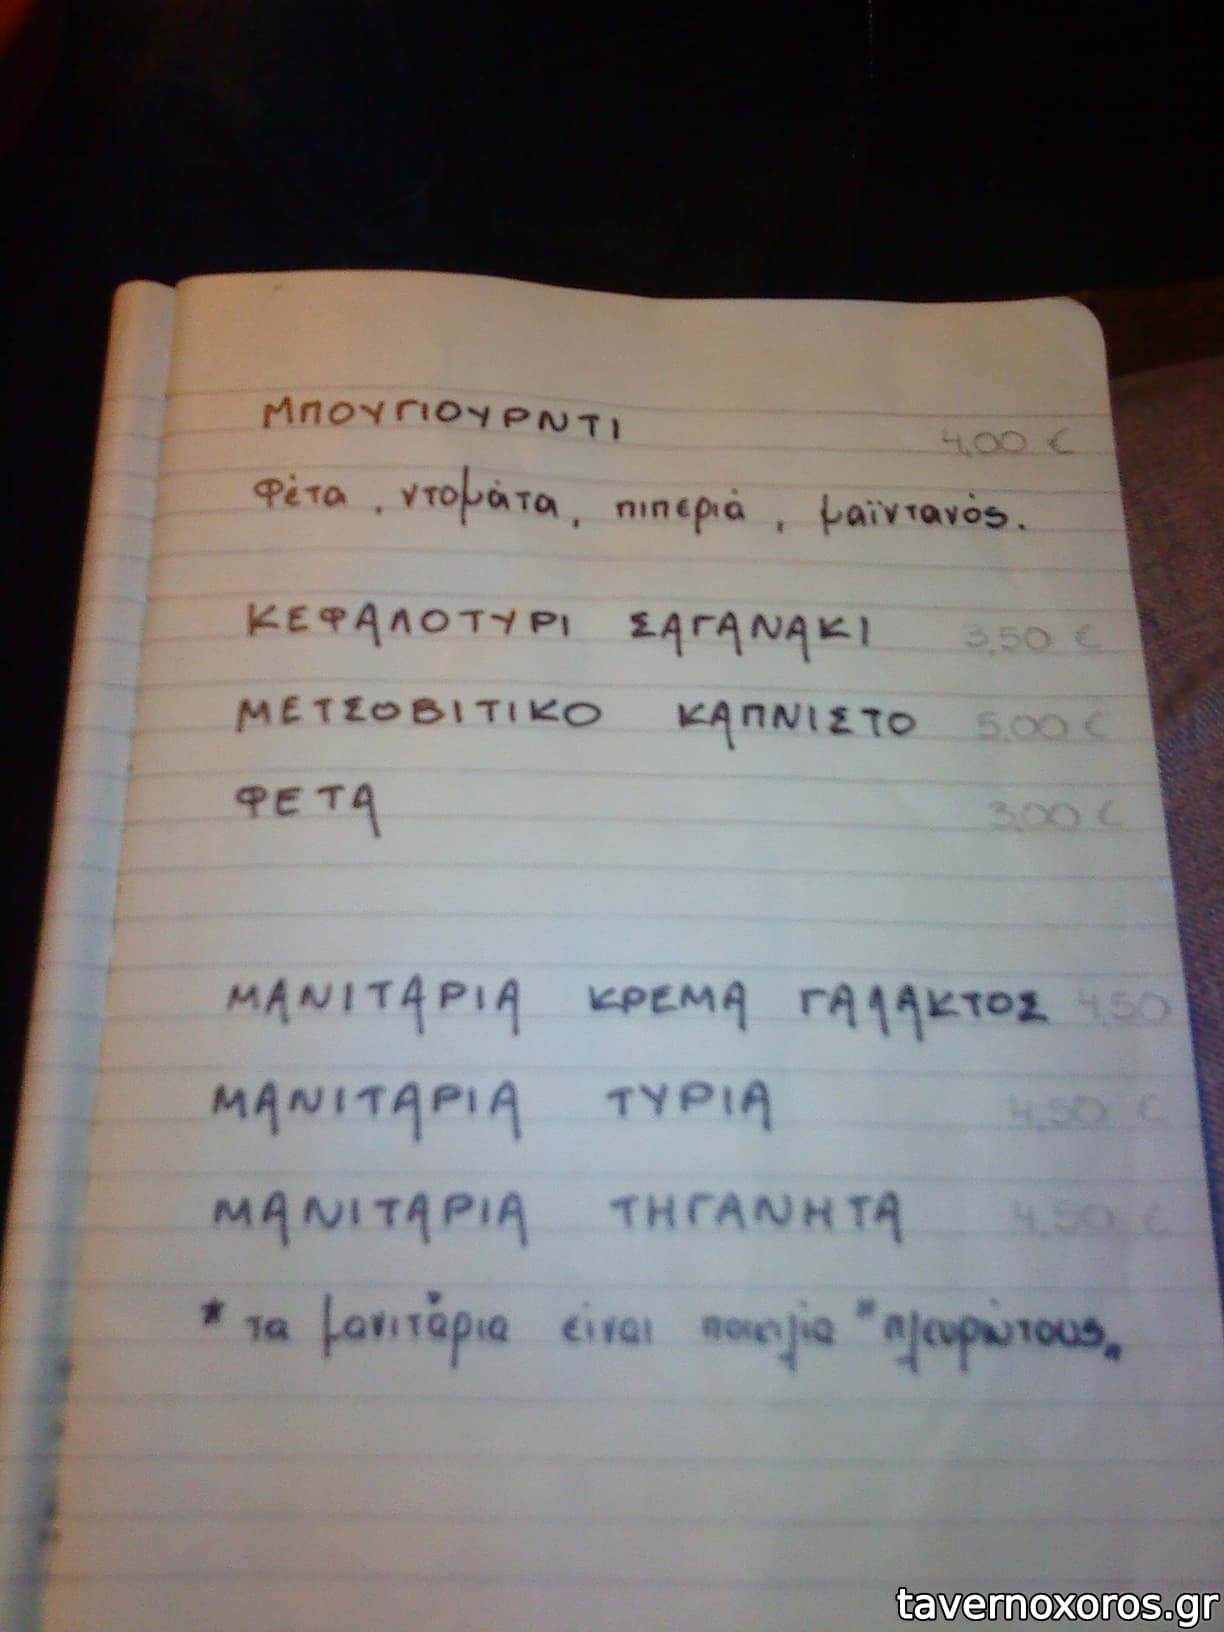 ΜΠΟΥΓΙΟΥΡΝΤΙ 4,00 €
Φέτα, ντομάτα, πιπεριά, μαϊντανός.
ΚΕΦΑΛΟΤΥΡΙ ΣΑΓΑΝΑΚΙ 3,50 €
ΜΕΤΣΟΒΙΤΙΚΟ ΚΑΠΝΙΣΤΟ 5,00 €
ΦΕΤΑ 3,00 €
ΜΑΝΙΤΑΡΙΑ ΚΡΕΜΑ ΓΑΛΑΚΤΟΣ 4,50
ΜΑΝΙΤΑΡΙΑ ΤΥΡΙΑ 4,50 €
ΜΑΝΙΤΑΡΙΑ ΤΗΓΑΝΗΤΑ 4,50 €
* τα μανιτάρια είναι ποικιλία "πλευρώτους"
tavernoxoros.gr